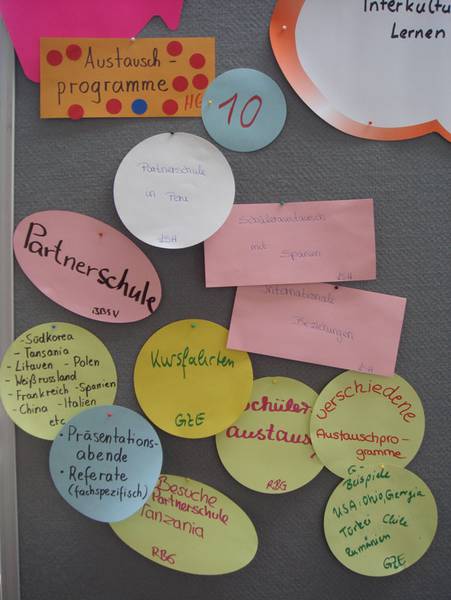 Interkultu
Lernen
Austausch-
programme
HG
10
Partnerschule
in Peru
LSH
Schüleraustausch
mit
Spanien
LSH
Partnerschule
BBSV
Internationale
Beziehungen
LSH
- Südkorea
- Tansania
- Litauen - Polen
- Weißrussland
- Frankreich - Spanien
- China - Italien
etc.
Kursfahrten
GZE
Schüler
austaus
RBG
verschiedene
Austauschpro-
gramme
• Präsentations-
abende
• Referate
(fachspezifisch)
Besuche
Partnerschule
Tanzania
RBG
Beispiele
USA: Ohio, Georgia
Türkei Chile
Rumänien
GZE